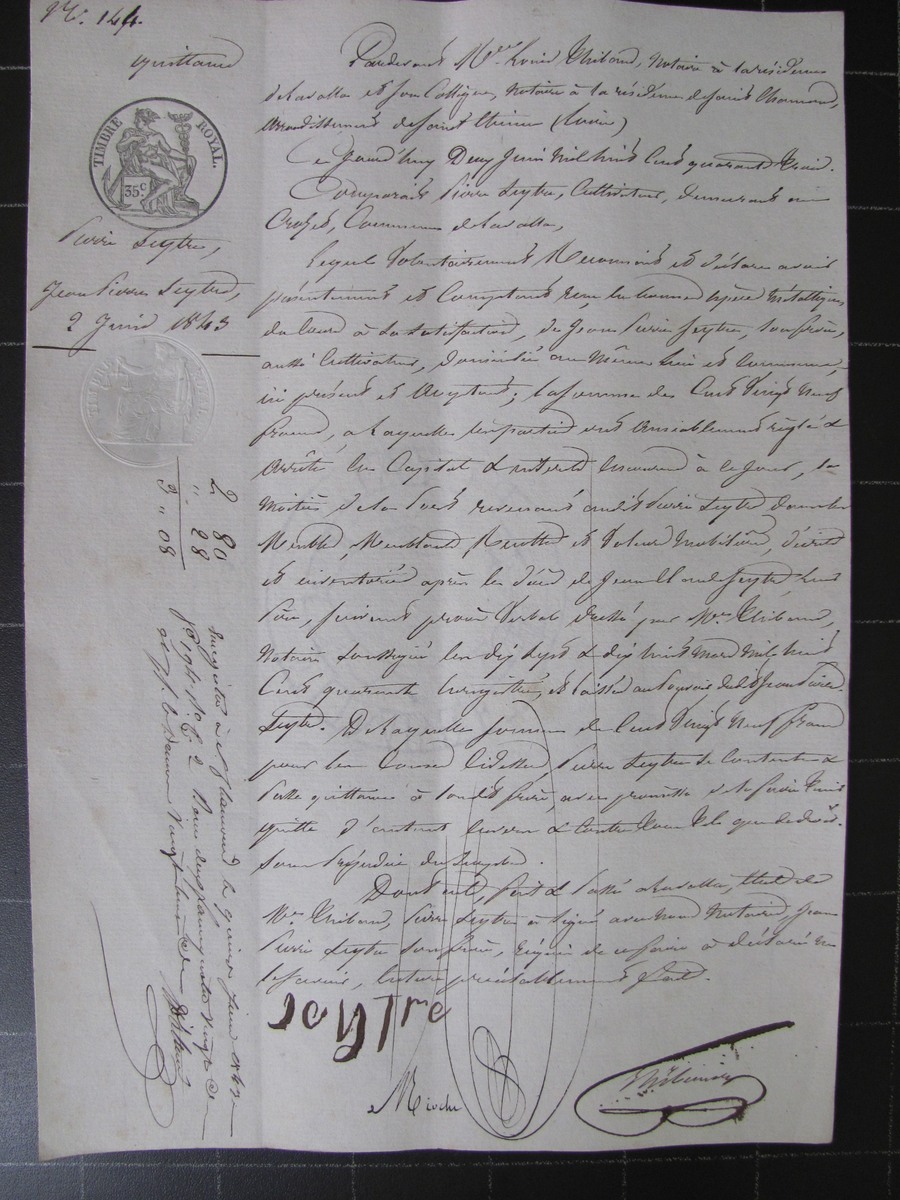 N.º 144.
quittance
TIMBRE ROYAL.
35 c.
Pierre Seytre,
Jean Pierre Seytre,
2 Juin 1843
Pardevant Me Louis Thibaud, Notaire à la résidence
de Lavalla et son Collègue, Notaire à la résidence de Saint Chamond,
arrondissement de Saint Etienne (Loire)
Ce Jourd'huy Deux Juin Mil huit Cent quarante trois.
Comparait Pierre Seytre, Cultivateur, demeurant au
Crozet, Commune de Lavalla,
Lequel Volontairement Reconnait et déclare avoir
présentement et Comptant reçu en bonnes espèces métalliques
du Cours à sa Satisfaction, de Jean Pierre Seytre, son frère,
aussi Cultivateur, domicilié au même lieu et Commune,
ici présent et acceptant; la somme de Cent Vingt Neuf
francs, à laquelle les parties ont amiablement réglé &
arrêté en Capital & intérêts encourus à ce Jour, la
moitié de la Part revenant audit Pierre Seytre dans les
Meubles, Meublants Récoltes et Valeurs Mobilières, décrits
et inventoriés après le décès de Jean Claude Seytre leur
Père, suivant procès Verbal dressé par Me Thibaud,
Notaire Soussigné les dix sept & dix huit Mars Mil huit
Cent quarante enregistré, et laissé au Pouvoir dudit Jean Pierre
Seytre. De laquelle somme de Cent Vingt Neuf francs
pour les Causes Cidessus Pierre Seytre se Contente &
Passe quittance à son dit frère, avec promesse de le faire tenir
quitte d'autant envers & Contre tous tels que de droit.
Sans Préjudice du Surplus.
Dont acte, fait & Passé à Lavalla, Etude de
Me Thibaud, Pierre Seytre a signé avec nous Notaires, Jean
Pierre Seytre son frère, requis de ce faire a déclaré ne
le savoir, lecture préalablement faite.
Seytre
Thibaud
2 80
" 28
3 " 08
Enregistré à St Chamond le quinze Juin 1843